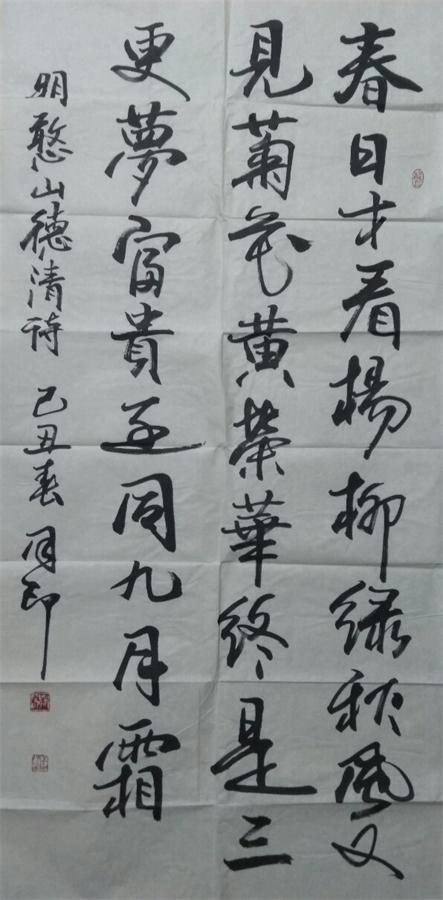 春日才看楊柳綠秋風又
見菊花黃榮華終是三
更夢富貴還同九月霜
明憨山德清詩 己丑春 月印